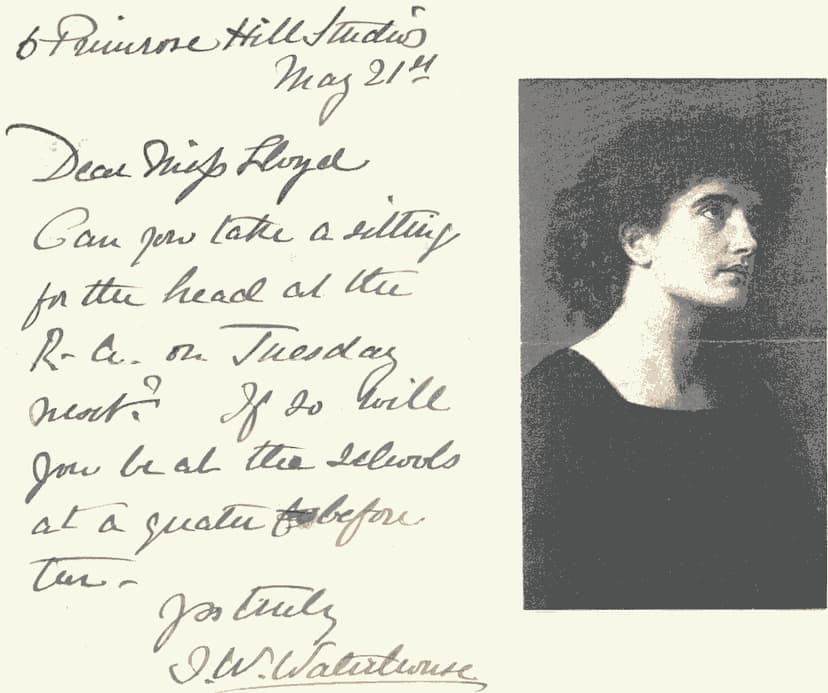 6 Primrose Hill Studios
May 21st
Dear Miss Lloyd
Can you take a sitting
for the head at the
R. A. on Tuesday
next? If so will
you be at the schools
at a quater before
ten -
Yrs truly
J. W. Waterhouse